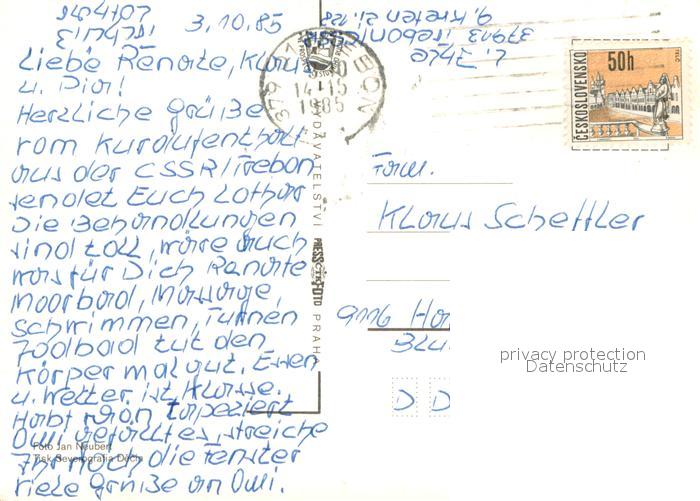 3.10.85
Liebe Renate, Klaus
u. Dirk!
Herzliche Grüße
vom Kuraufenthalt
aus der CSSR/Trebon
sendet Euch Lothar
Die Behandlungen
sind toll, wäre auch
was für Dich Renate
Moorbad, Massage,
Schwimmen, Turnen
Jodbad tut den
Körper mal gut. Essen
u. Wetter ist Klasse.
Habt schon tapeziert
Omi gefällt es, streiche
Ihr noch die Fenster
viele Grüße an Omi.
Foto Jan Neubert
Tisk Severografia Děčín
VYDAVATELSTVÍ PRESSFOTO PRAHA
379 01
14-15
1985
ČESKOSLOVENSKO
50h
Fam.
Klaus Schettler
9116
D D
privacy protection
Datenschutz